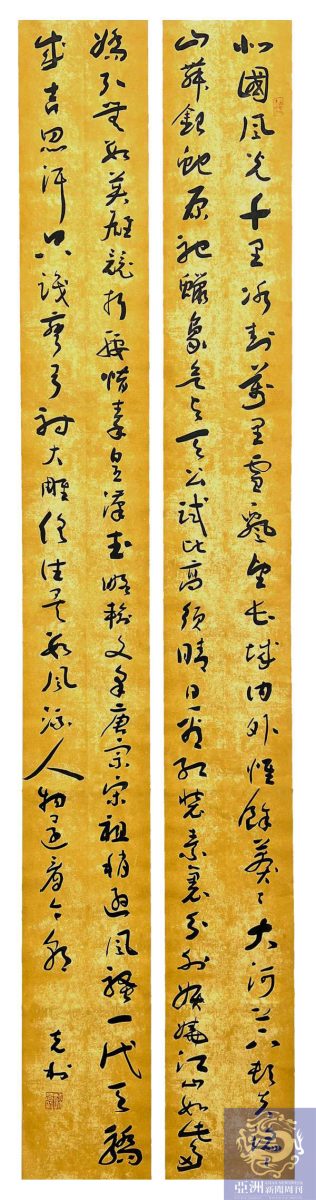 北國風光千里冰封萬里雪飄望長城內外惟餘莽々大河上下頓失滔々
山舞銀蛇原馳蠟象欲與天公試比高須晴日看紅裝素裹分外妖嬈江山如此多
嬌引無數英雄競折腰惜秦皇漢武略輸文采唐宗宋祖稍遜風騷一代天驕
成吉思汗只識彎弓射大雕俱往矣數風流人物還看今朝
亞洲新聞周刊